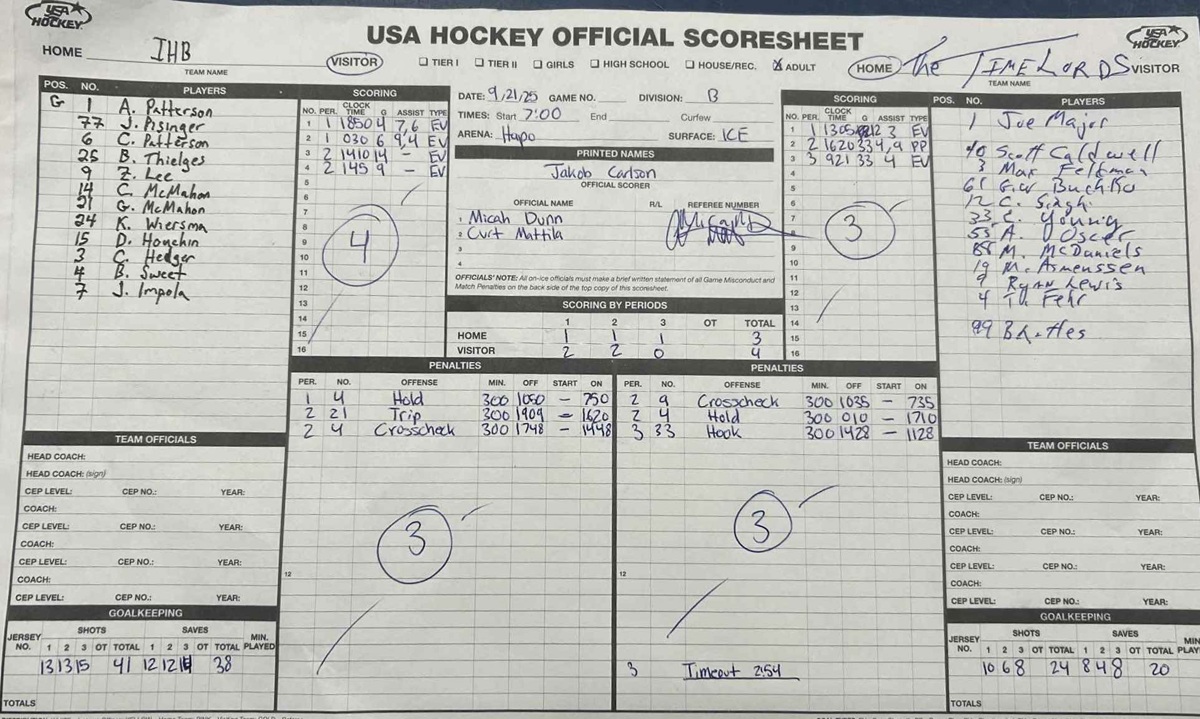 USA HOCKEY
USA HOCKEY OFFICIAL SCORESHEET
USA HOCKEY
HOME IHB VISITOR
TEAM NAME
☐ TIER I ☐ TIER II ☐ GIRLS ☐ HIGH SCHOOL ☐ HOUSE/REC. ☒ ADULT
HOME The TIMELORDS VISITOR
TEAM NAME
POS. NO. PLAYERS
G 1 A. Patterson
77 J. Pisinger
6 C. Patterson
25 B. Thielges
9 Z. Lee
14 C. McMahon
21 G. McMahon
24 K. Wiersma
15 D. Honchin
3 C. Hedger
4 B. Sweet
7 J. Impola
SCORING
NO. PER. CLOCK TIME G ASSIST TYPE
1 1 1850 4 7,6 EV
2 1 030 6 9,4 EV
3 2 1410 14 - EV
4 2 145 9 - EV
5
6
7
8
9
10
11
12
13
14
15
16
4
DATE: 9/21/25 GAME NO. DIVISION: B
TIMES: Start 7:00 End Curfew
ARENA: Hapo SURFACE: ICE
PRINTED NAMES
Jakob Carlson
OFFICIAL SCORER
OFFICIAL NAME R/L REFEREE NUMBER
1 Micah Dunn
2 Curt Mattila
3
4
OFFICIALS' NOTE: All on-ice officials must make a brief written statement of all Game Misconduct and
Match Penalties on the back side of the top copy of this scoresheet.
SCORING BY PERIODS
1 2 3 OT TOTAL
HOME 1 1 1 3
VISITOR 2 2 0 4
SCORING
NO. PER. CLOCK TIME G ASSIST TYPE
1 1 1305 12 3 EV
2 2 1620 33 4,9 PP
3 3 921 33 4 EV
4
5
6
7
8
9
10
11
12
13
14
15
16
3
POS. NO. PLAYERS
1 Joe Major
40 Scott Caldwell
3 Max Feldman
61 Buchko
12 C. Singh
33 C. Young
55 A. Oscer
88 M. McDaniels
19 M. Asmenssen
9 Ryan Lewis
4 Ty. Fehr
99
PENALTIES
PER. NO. OFFENSE MIN. OFF START ON
1 4 Hold 300 1050 - 750
2 21 Trip 300 1909 - 1620
2 4 Crosscheck 300 1748 - 1448
12
3
PENALTIES
PER. NO. OFFENSE MIN. OFF START ON
2 9 Crosscheck 300 1035 - 735
2 4 Hold 300 010 - 1710
3 33 Hook 300 1428 - 1128
12
3
3 Timeout 2:54
TEAM OFFICIALS
HEAD COACH:
HEAD COACH: (sign)
CEP LEVEL: CEP NO.: YEAR:
COACH:
CEP LEVEL: CEP NO.: YEAR:
COACH:
CEP LEVEL: CEP NO.: YEAR:
COACH:
CEP LEVEL: CEP NO.: YEAR:
GOALKEEPING
JERSEY NO. SHOTS SAVES MIN. PLAYED
1 2 3 OT TOTAL 1 2 3 OT TOTAL
13 13 15 41 12 12 14 38
TOTALS
TEAM OFFICIALS
HEAD COACH:
HEAD COACH: (sign)
CEP LEVEL: CEP NO.: YEAR:
COACH:
CEP LEVEL: CEP NO.: YEAR:
COACH:
CEP LEVEL: CEP NO.: YEAR:
COACH:
CEP LEVEL: CEP NO.: YEAR:
GOALKEEPING
JERSEY NO. SHOTS SAVES MIN. PLAY
1 2 3 OT TOTAL 1 2 3 OT TOTAL
10 6 8 24 8 4 8 20
TOTALS